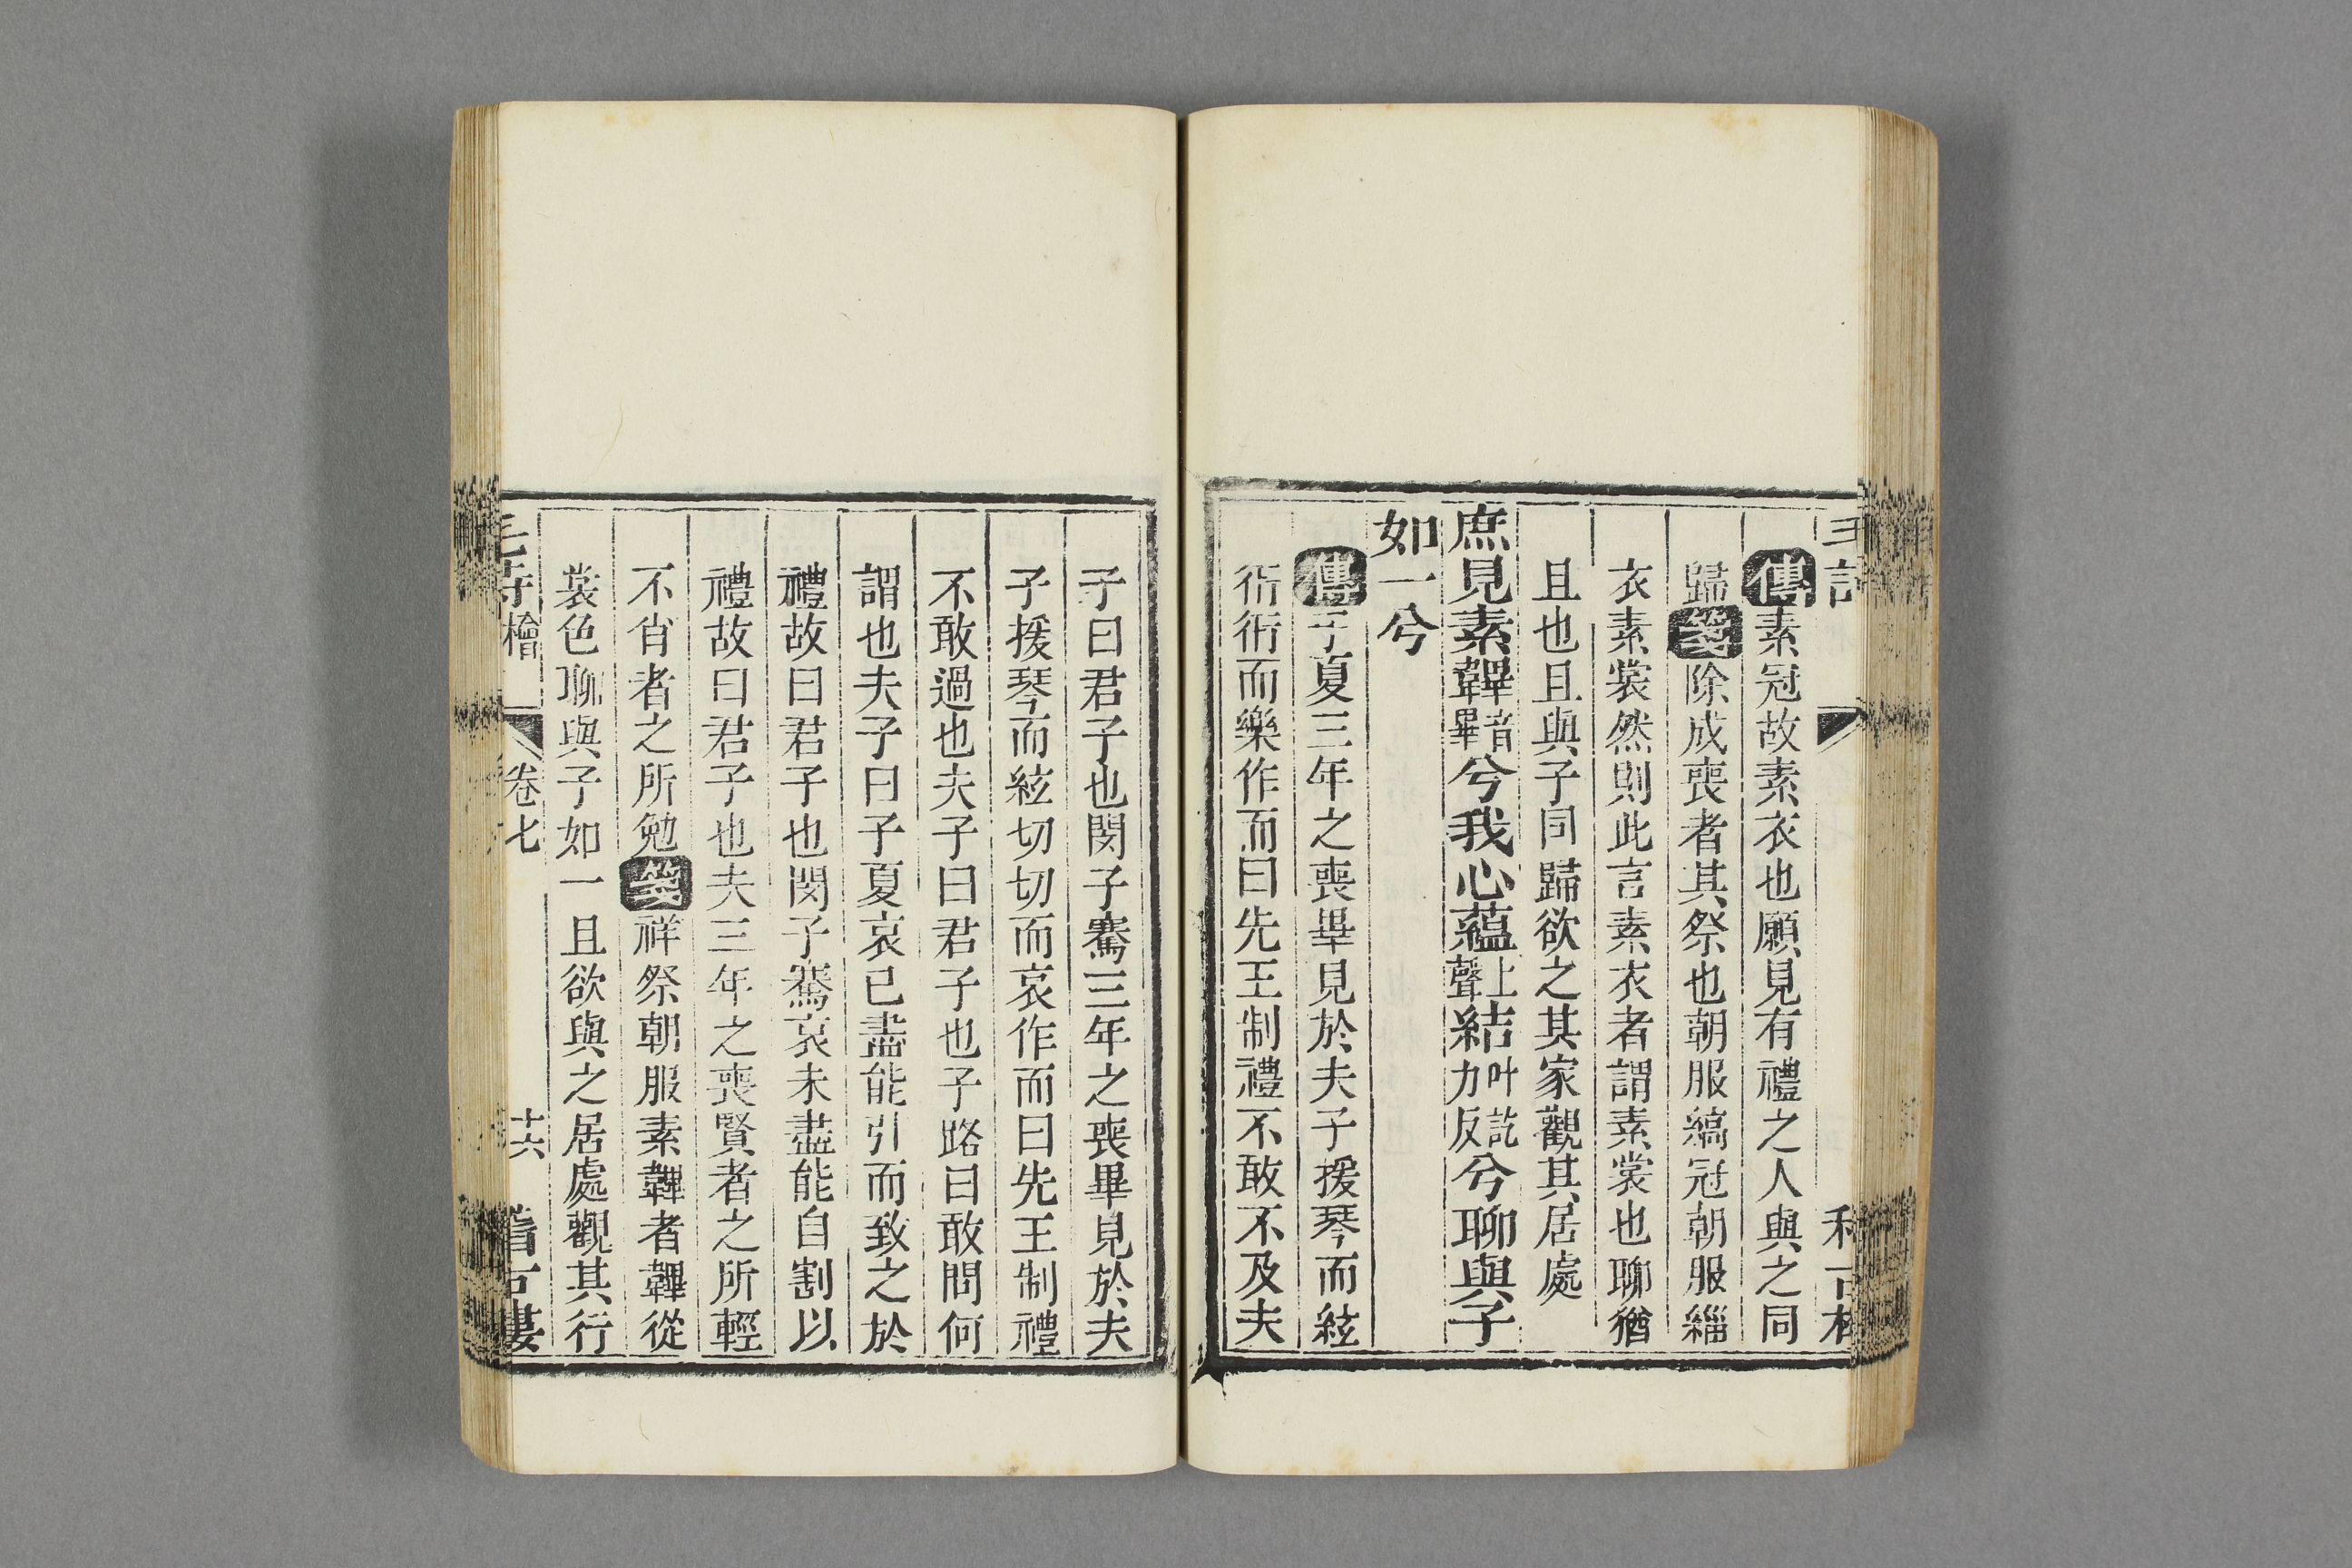 傳素冠故素衣也願見有禮之人與之同
歸箋除成喪者其祭也朝服縞冠朝服緇
衣素裳然則此言素衣者謂素裳也聊猶
且也且與子同歸欲之其家觀其居處
庶見素韠音畢兮我心蘊上聲結叶訖力反兮聊與子
如一兮
傳子夏三年之喪畢見於夫子援琴而絃
衎衎而樂作而曰先王制禮不敢不及夫
子曰君子也閔子騫三年之喪畢見於夫
子援琴而絃切切而哀作而曰先王制禮
不敢過也夫子曰君子也子路曰敢問何
謂也夫子曰子夏哀已盡能引而致之於
禮故曰君子也閔子騫哀未盡能自割以
禮故曰君子也夫三年之喪賢者之所輕
不肖者之所勉箋祥祭朝服素韠者韠從
裳色聊與子如一且欲與之居處觀其行
毛詩檜 卷七 十六 稽古樓